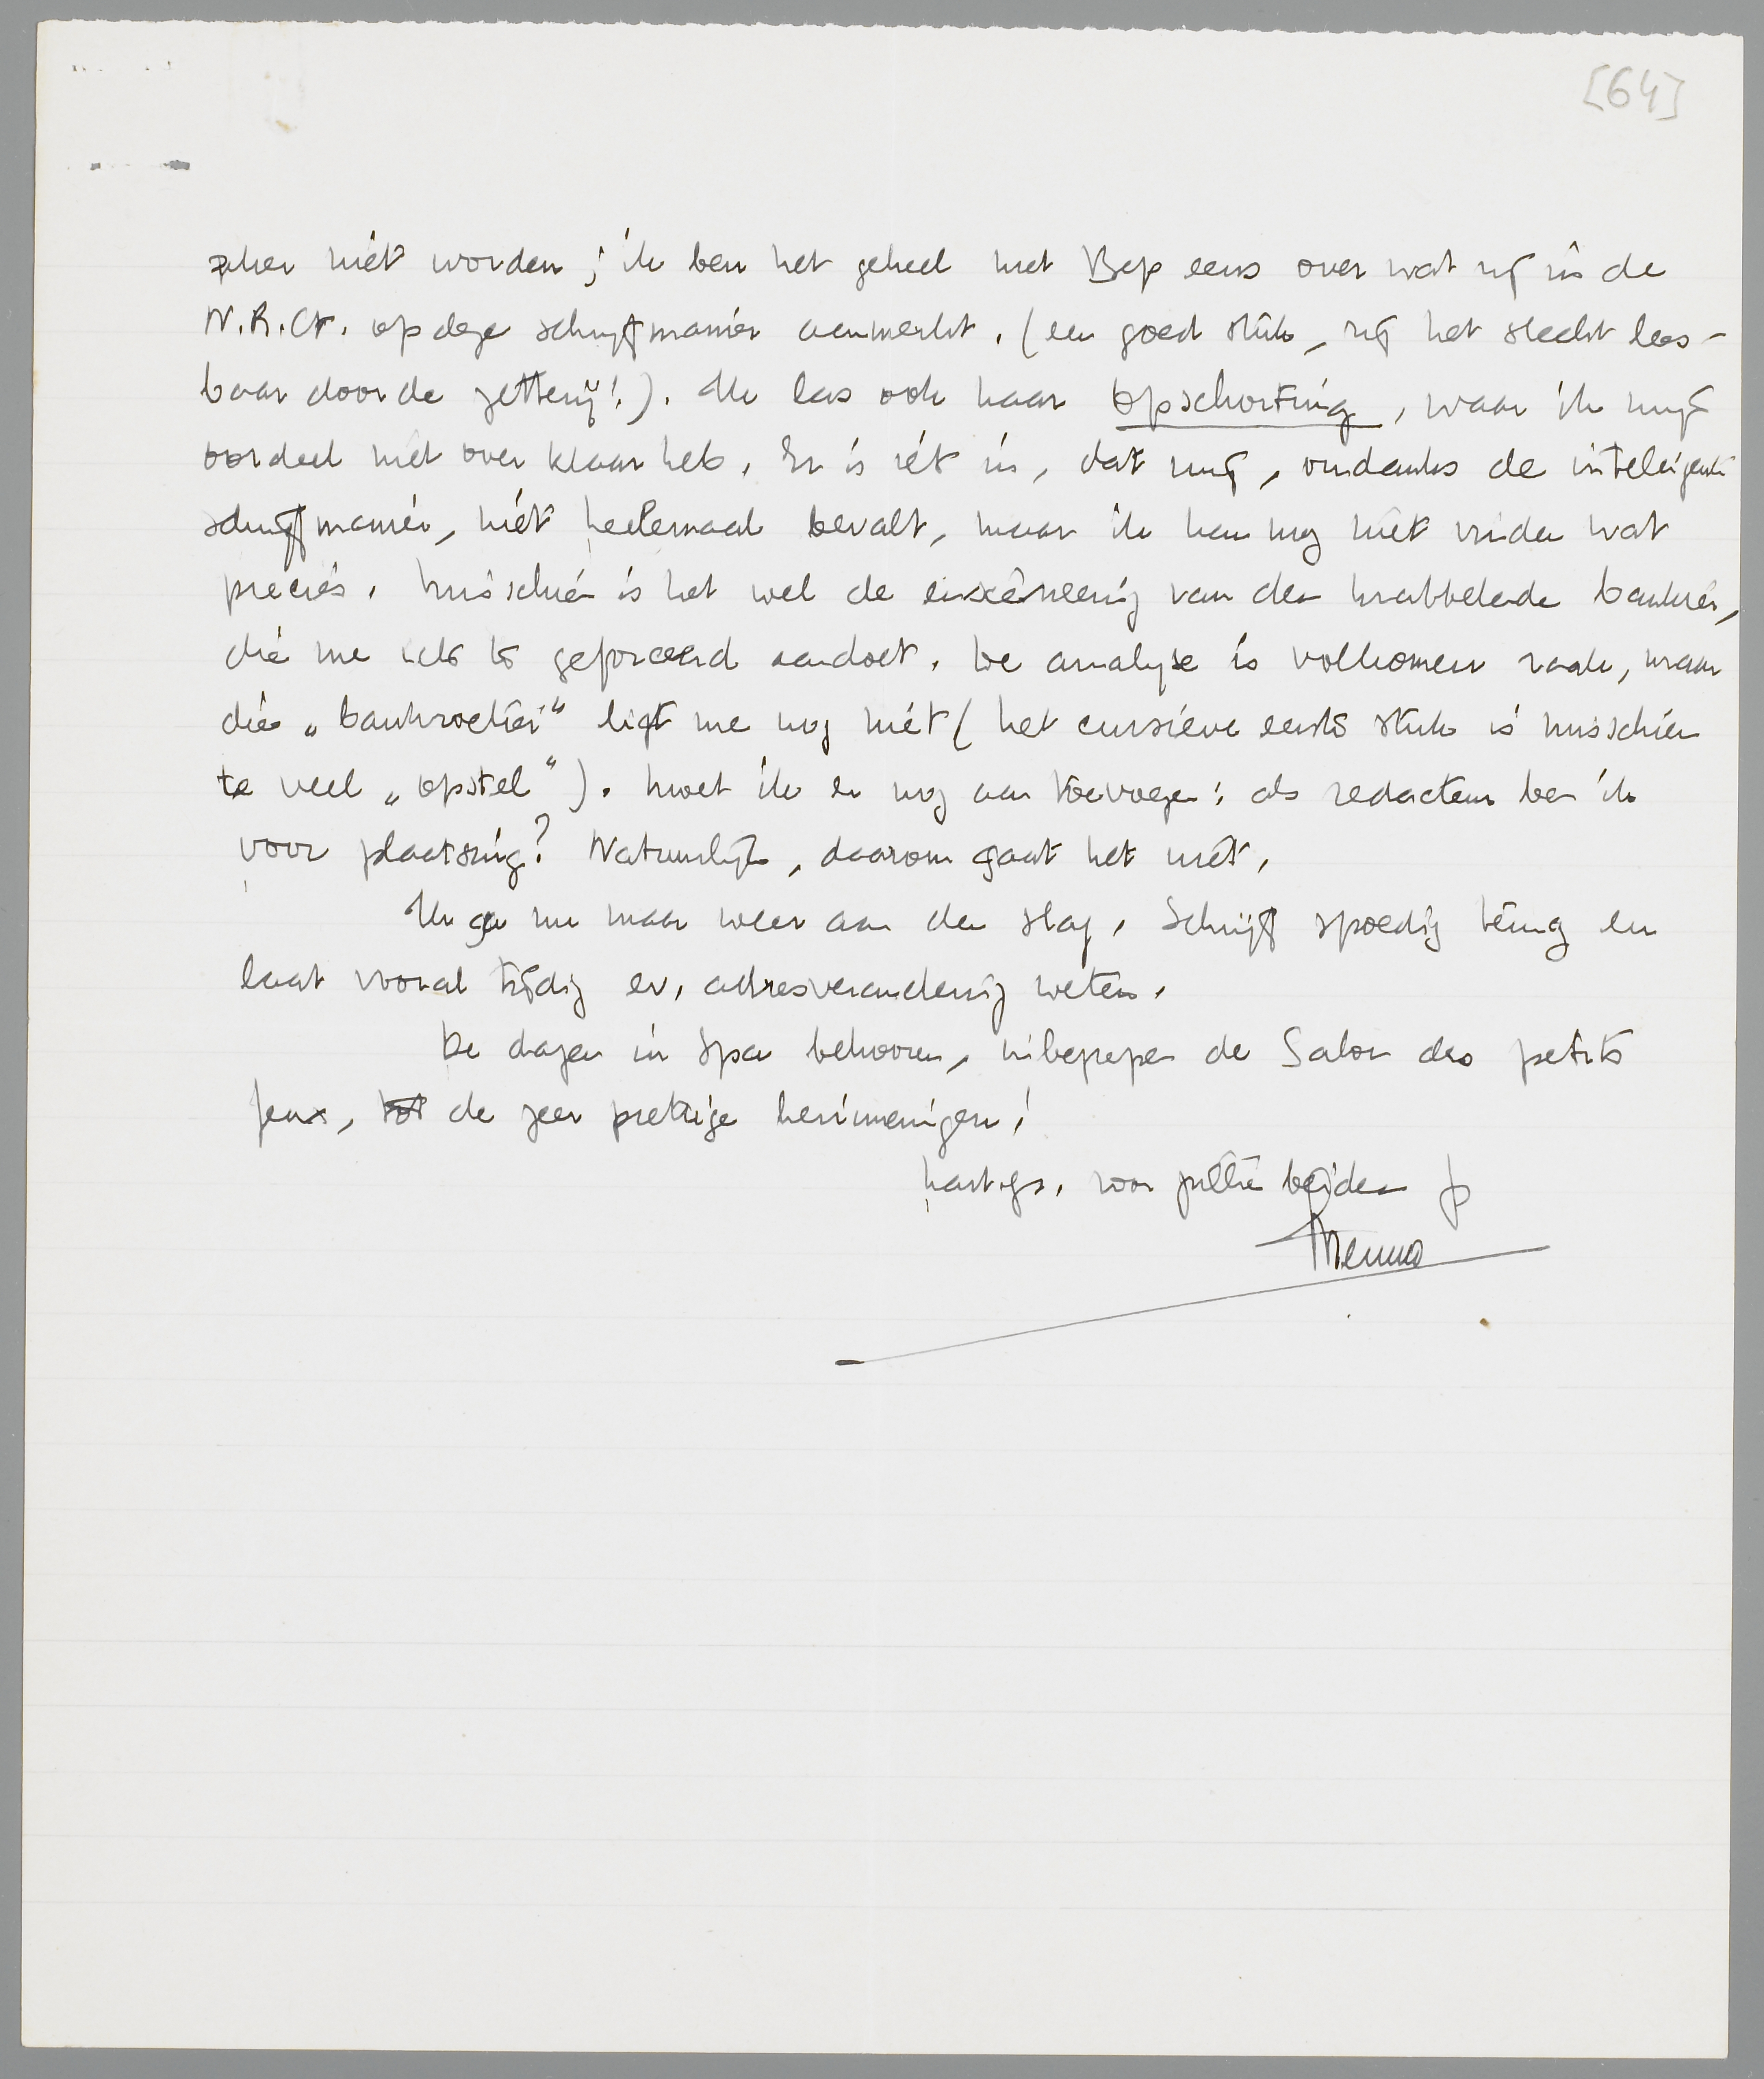 [64]
zeker niet worden; ik ben het geheel met Bep eens over wat zij in de
N.R.Ct. op deze schrijfmanier aanmerkt. (een goed stuk, zij het slecht lees-
baar door de zetterij!). Ik las ook haar Opschorting, waar ik mijn
oordeel niet over klaar heb. Er is iét in, dat mij, ondanks de intelligente
schrijfmanier, niet heelemaal bevalt, maar ik kan nog niet vinden wat
precies. Misschien is het wel de enscèneering van den krabbelende bankier,
die me iets te geforceerd aandoet. De analyse is volkomen raak, maar
die „bankroetier" ligt me nog niet (het cursieve eerste stuk is misschien
te veel „opstel"). Moet ik er nog aan toevoegen: als redacteur ben ik
voor plaatsing? Natuurlijk, daarom gaat het niet.
Ik ga nu maar weer aan den slag. Schrijf spoedig terug en
laat vooral tijdig ev. adresverandering weten.
De dagen in Spa behooren, inbegrepen de Salon des petits
Jeux, tot de zeer prettige herinneringen!
hart. gr. voor jullie beiden
Menno